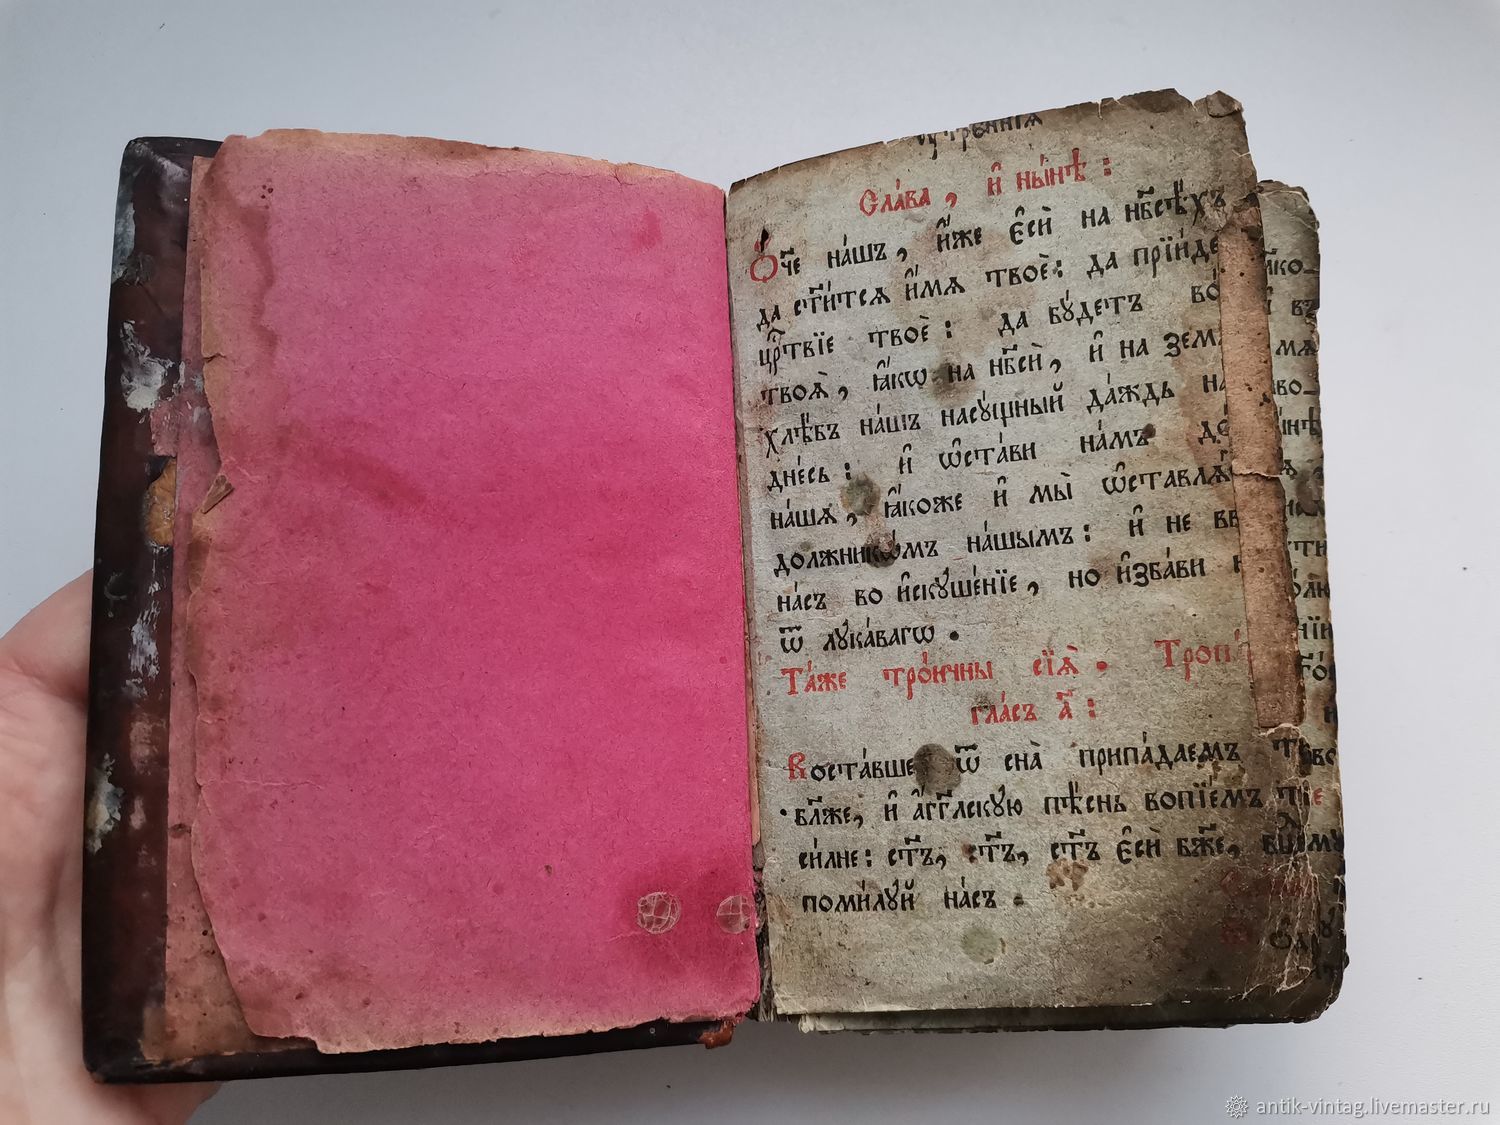 оутрєнніѧ
Сла́ва, и҆ ны́нѣ:
Ѻ҆́ч҃е на́шъ, и҆́же є҆сѝ на нб҃сѣ́хъ
да ст҃и́тсѧ и҆́мѧ твоѐ: да прїи́де
црⷭ҇твїе твоѐ: да бꙋ́детъ во́
твоѧ̀, ꙗ҆́кѡ на нб҃сѝ, и҆ на зем
хлѣ́бъ на́шъ насꙋ́щный да́ждь на
дне́сь: и҆ ѡ҆ста́ви на́мъ до́
на́шѧ, ꙗ҆́коже и҆ мы̀ ѡ҆ставлѧ́
должникѡ́мъ на́шымъ: и҆ не вв
на́съ во и҆скꙋше́нїе, но и҆зба́ви н
ѿ лꙋка́вагѡ.
Та́же тро́ичны сїѧ̀. Тропа́
гла́съ а҃:
Воста́вше ѿ сна̀ припа́даемъ т
бл҃же, и҆ а҆́гг҃лскꙋю пѣ́снь вопїе́мъ тѝ
си́лне: ст҃ъ, ст҃ъ, ст҃ъ є҆сѝ бж҃е,
поми́лꙋй на́съ.
antik-vintag.livemaster.ru